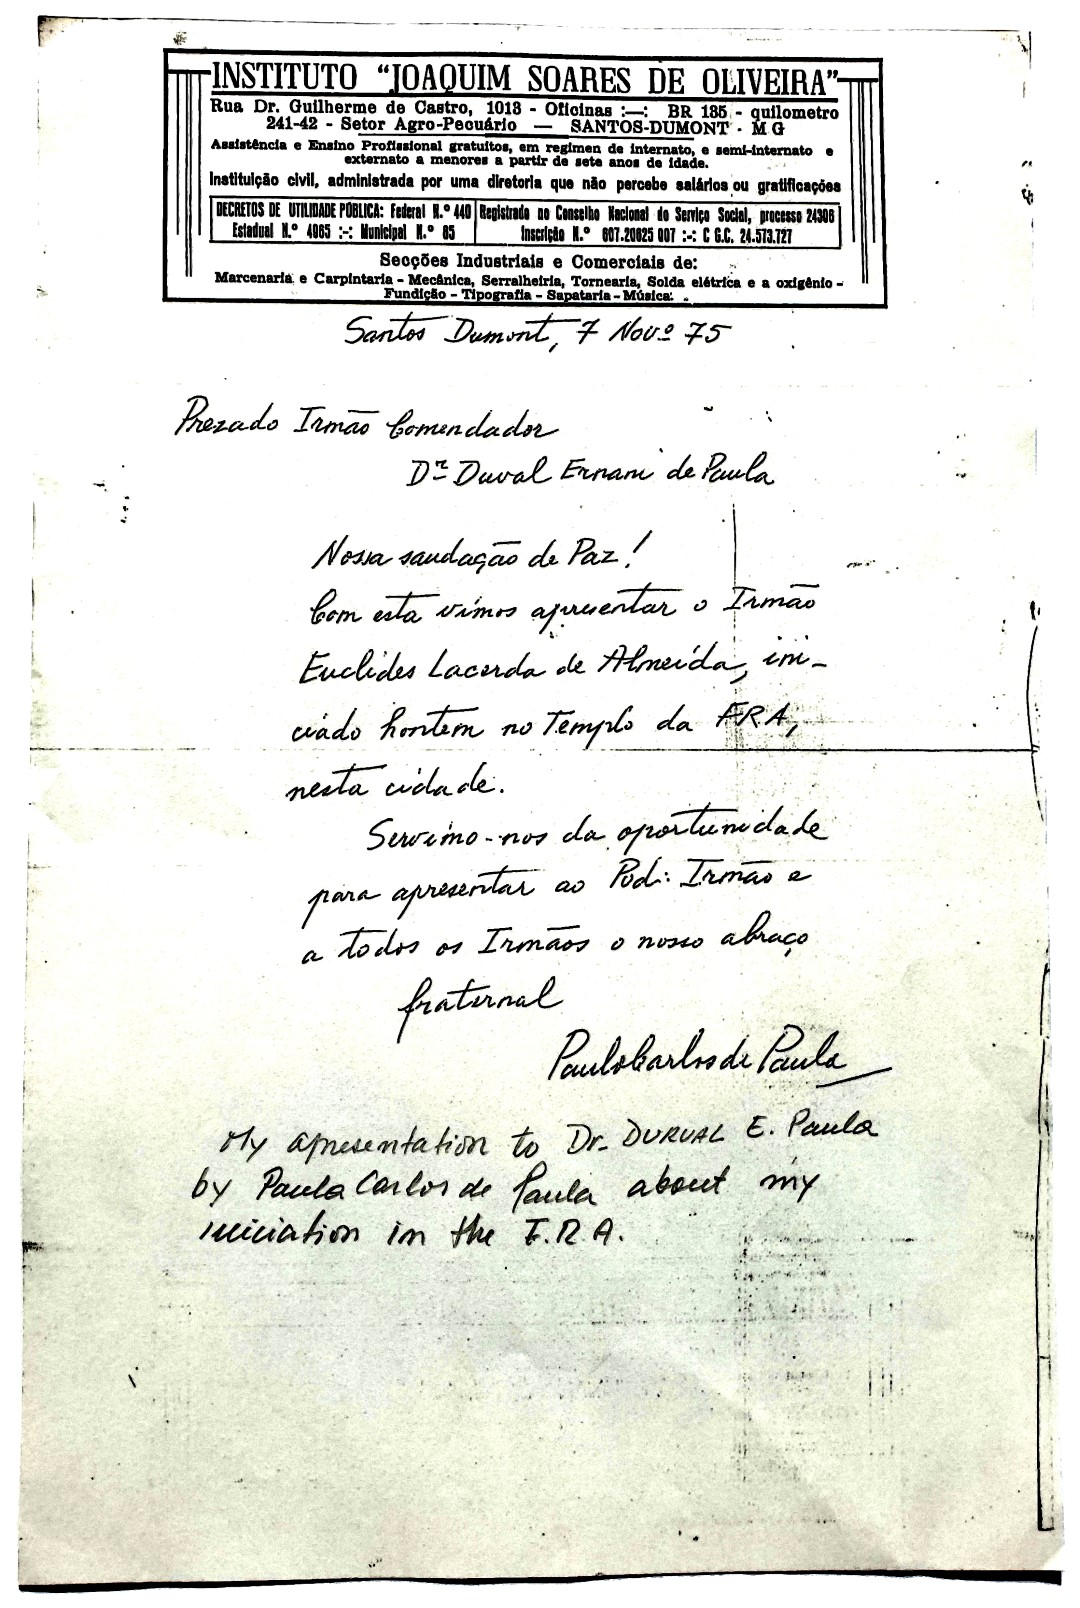 INSTITUTO “JOAQUIM SOARES DE OLIVEIRA”
Rua Dr. Guilherme de Castro, 1013 - Oficinas :—: BR 135 - quilometro
241-42 - Setor Agro-Pecuário — SANTOS-DUMONT - MG
Assistência e Ensino Profissional gratuitos, em regimen de internato, e semi-internato e
externato a menores a partir de sete anos de idade.
Instituição civil, administrada por uma diretoria que não percebe salários ou gratificações
DECRETOS DE UTILIDADE PÚBLICA: Federal N.º 440
Estadual N.º 4065 :-: Municipal N.º 85
Registrado no Conselho Nacional do Serviço Social, processo 24306
Inscrição N.º 607.20625 007 :-: C G.C. 24.573.727
Secções Industriais e Comerciais de:
Marcenaria e Carpintaria - Mecânica, Serralheiria, Tornearia, Solda elétrica e a oxigênio -
Fundição - Tipografia - Sapataria - Música.
Santos Dumont, 7 Novº 75
Prezado Irmão Comendador
Dr Duval Ernani de Paula
Nossa saudação de Paz!
Com esta vimos apresentar o Irmão
Euclides Lacerda de Almeida, ini-
ciado hontem no Templo da FRA,
nesta cidade.
Servimo-nos da oportunidade
para apresentar ao Pod∴ Irmão e
a todos os Irmãos o nosso abraço
fraternal
Paulo Carlos de Paula
My apresentation to Dr. DURVAL E. Paula
by Paula Carlos de Paula about my
iniciation in the F.R.A.